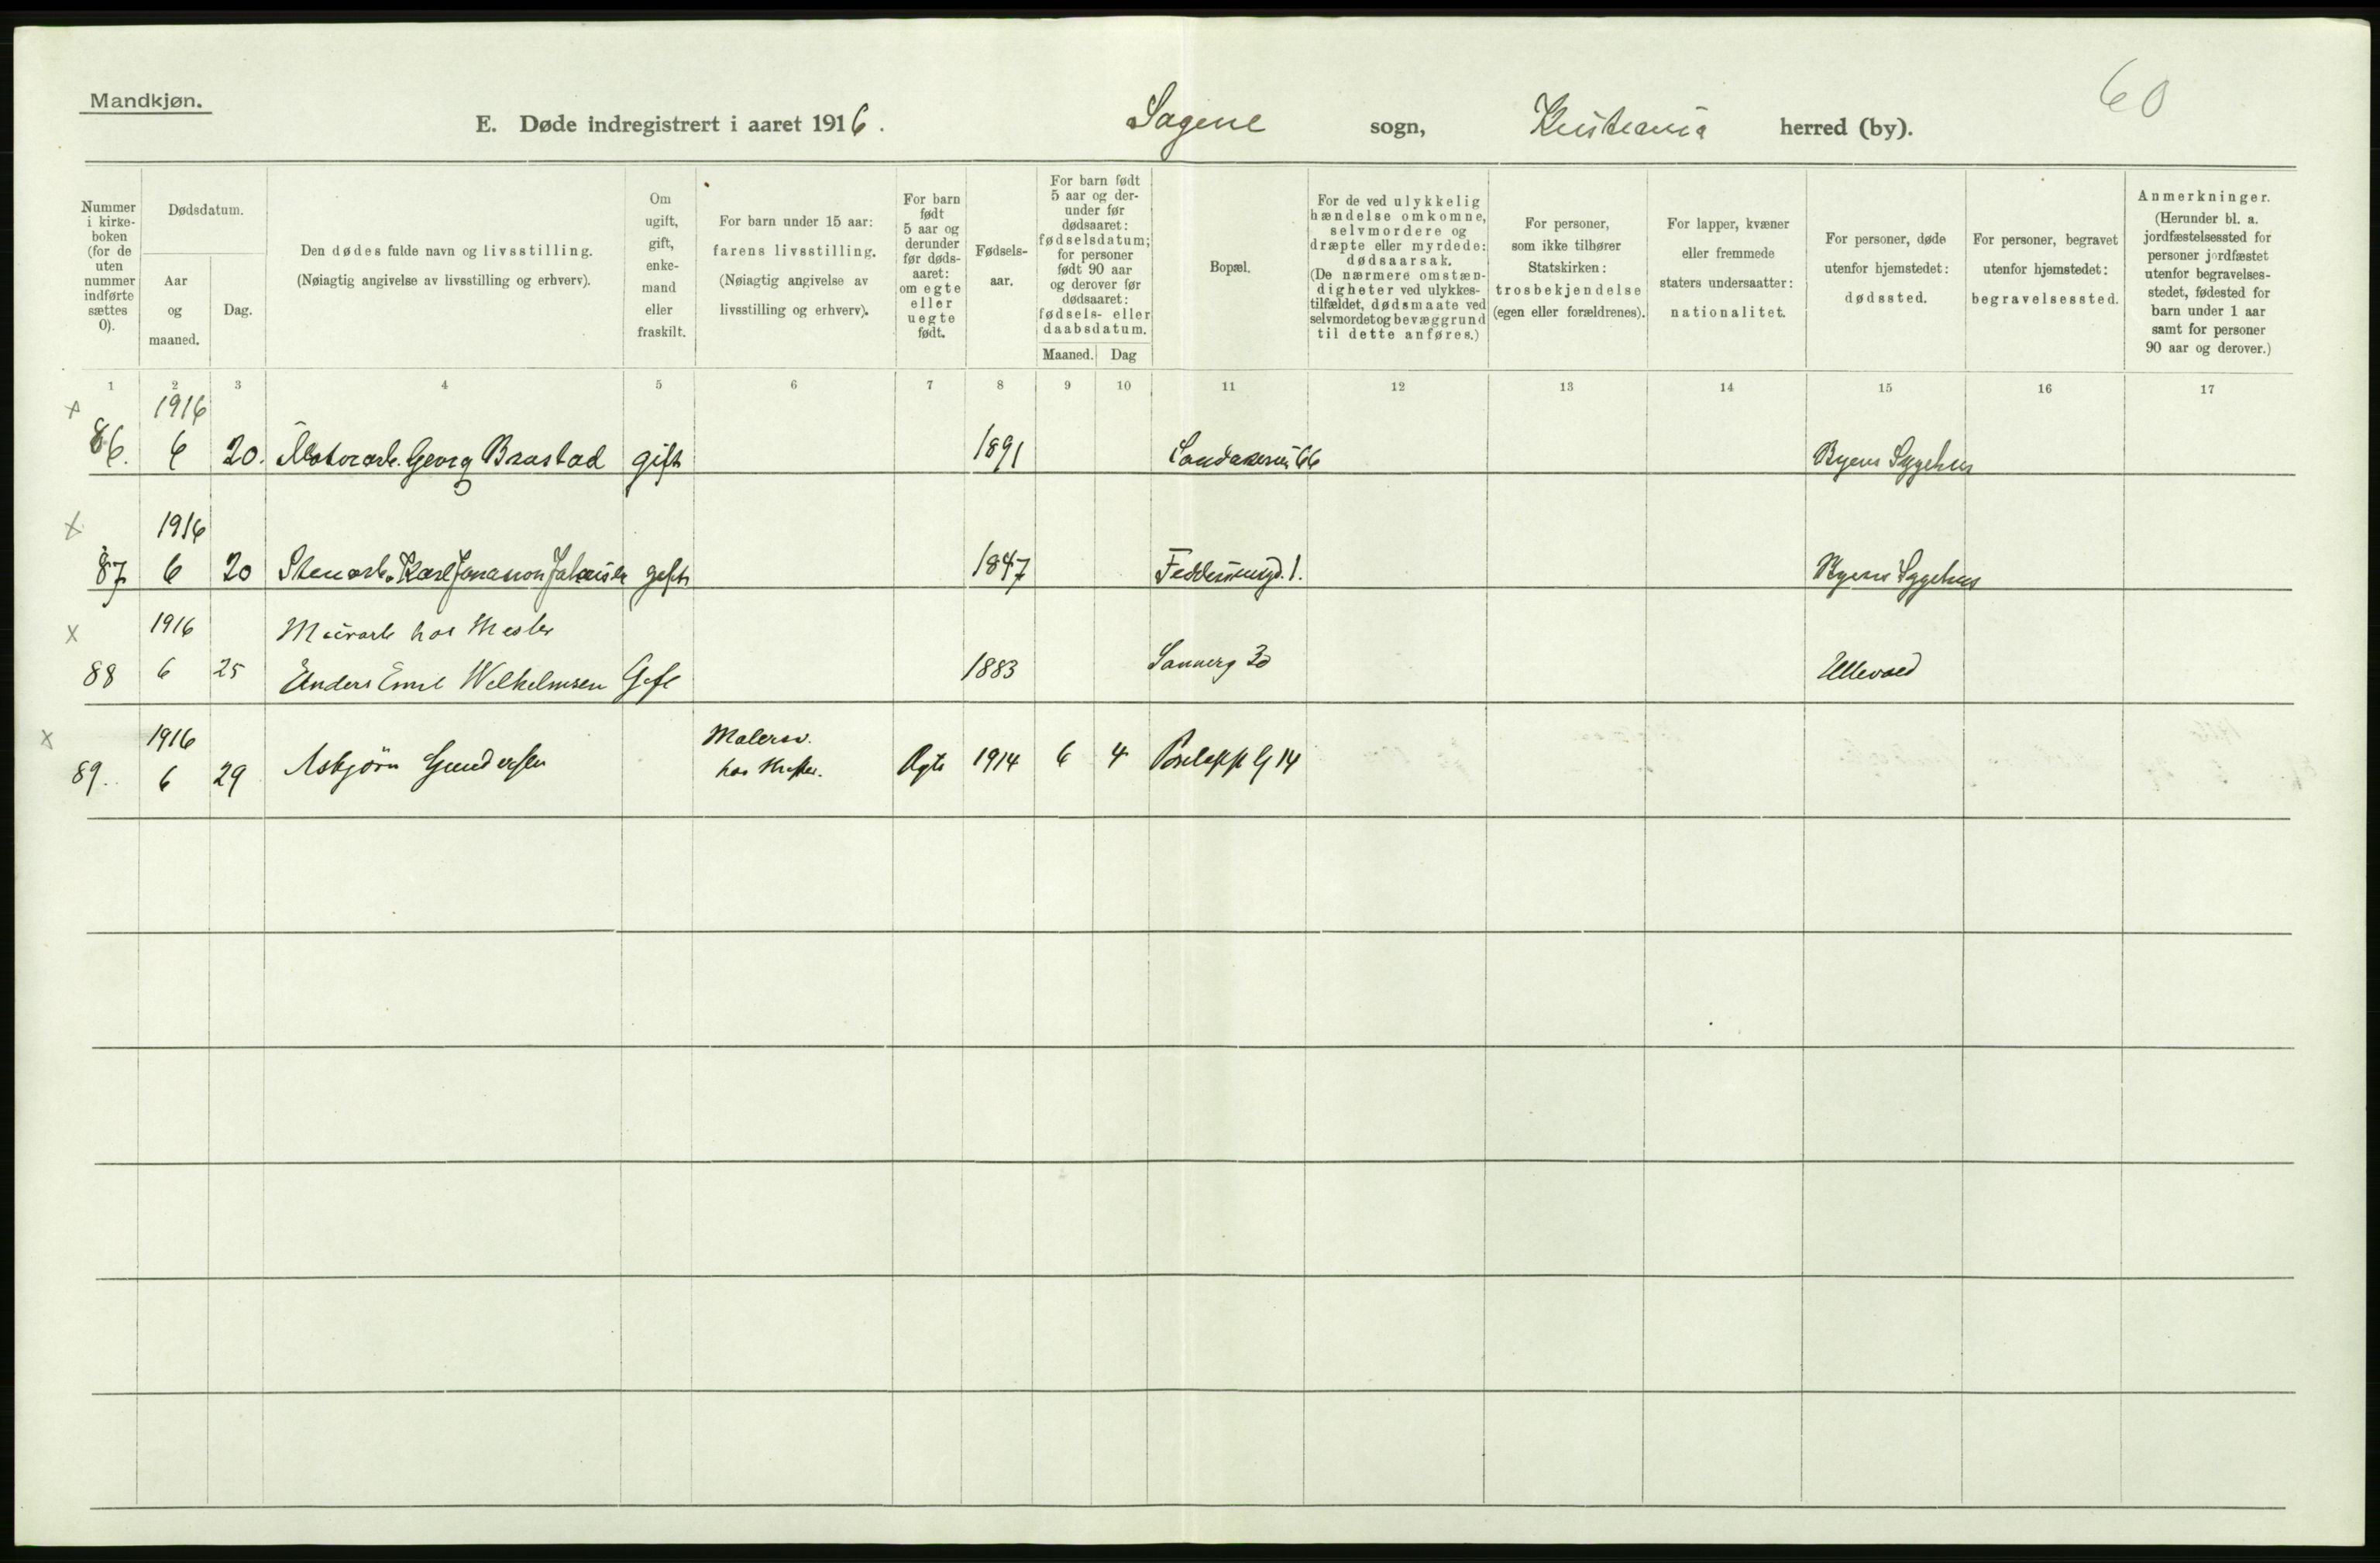 60
Mandkjøn.
E. Døde indregistrert i aaret 1916. Sagene sogn, Kristiania herred (by).
Nummer i kirke-boken (for de uten nummer indførte sættes 0).
Dødsdatum.
Aar og maaned.
Dag.
Den dødes fulde navn og livsstilling.
(Nøiagtig angivelse av livsstilling og erhverv).
Om ugift, gift, enke-mand eller fraskilt.
For barn under 15 aar:
farens livsstilling.
(Nøiagtig angivelse av livsstilling og erhverv).
For barn født 5 aar og derunder før døds-aaret: om egte eller uegte født.
Fødsels-aar.
For barn født 5 aar og der-under før dødsaaret: fødselsdatum; for personer født 90 aar og derover før dødsaaret: fødsels- eller daabsdatum.
Maaned. Dag
Bopæl.
For de ved ulykkelig hændelse omkomne, selvmordere og dræpte eller myrdede: dødsaarsak. (De nærmere omstæn-digheter ved ulykkes-tilfældet, dødsmaate ved selvmord et og bevæggrund til dette anføres.)
For personer, som ikke tilhører Statskirken: trosbekjendelse (egen eller forældrenes).
For lapper, kvæner eller fremmede staters undersaatter: nationalitet.
For personer, døde utenfor hjemstedet: dødssted.
For personer, begravet utenfor hjemstedet: begravelsessted.
Anmerkninger.
(Herunder bl. a. jordfæstelsessted for personer jordfæstet utenfor begravelses-stedet, fødested for barn under 1 aar samt for personer 90 aar og derover.)
1 2 3 4 5 6 7 8 9 10 11 12 13 14 15 16 17
x 1916
86. 6 20. Motorarb. Georg Brastad gift 1891 Sandakervei 66 Byens Sygehus
x 1916
87 6 20 Stenarb. Karl Jonasson Johansen gift 1847 Feddersensgd. 1. Byens Sygehus
x 1916 Murarb hos Mester
88 6 25 Anders Emil Wilhelmsen Gift 1883 Sannerg 30 Ullevaal
x 1916 Malersv.
89. 6 29 Asbjörn Gundersen hos Mester. Ægte 1914 6 4 G 14